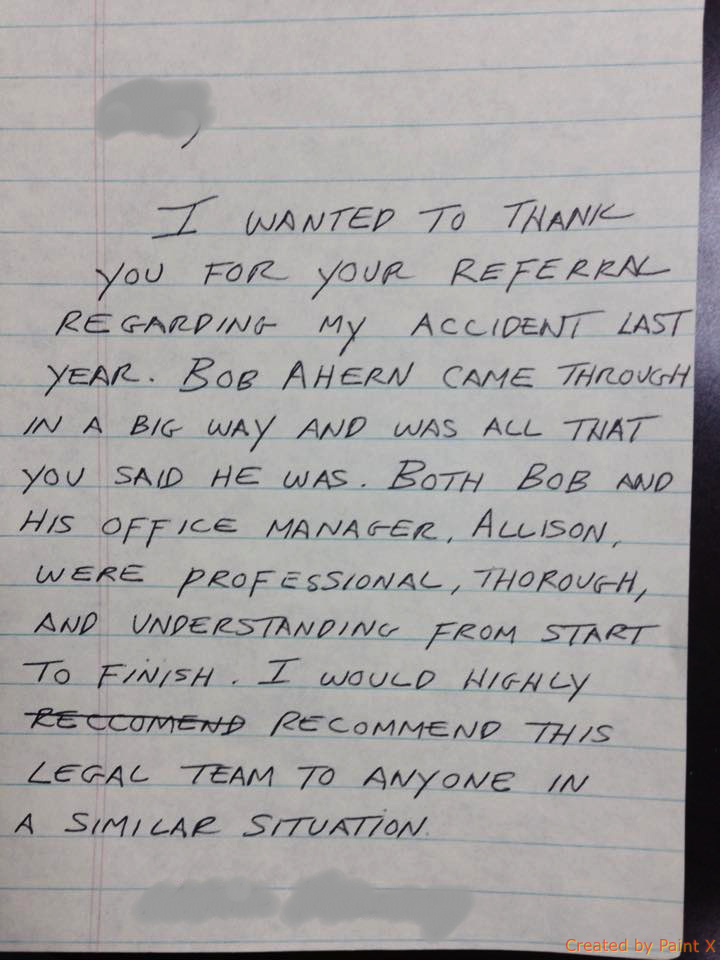 ,
I WANTED TO THANK
YOU FOR YOUR REFERRAL
REGARDING MY ACCIDENT LAST
YEAR. BOB AHERN CAME THROUGH
IN A BIG WAY AND WAS ALL THAT
YOU SAID HE WAS. BOTH BOB AND
HIS OFFICE MANAGER, ALLISON,
WERE PROFESSIONAL, THOROUGH,
AND UNDERSTANDING FROM START
TO FINISH. I WOULD HIGHLY
RECCOMEND RECOMMEND THIS
LEGAL TEAM TO ANYONE IN
A SIMILAR SITUATION.
Created by Paint X